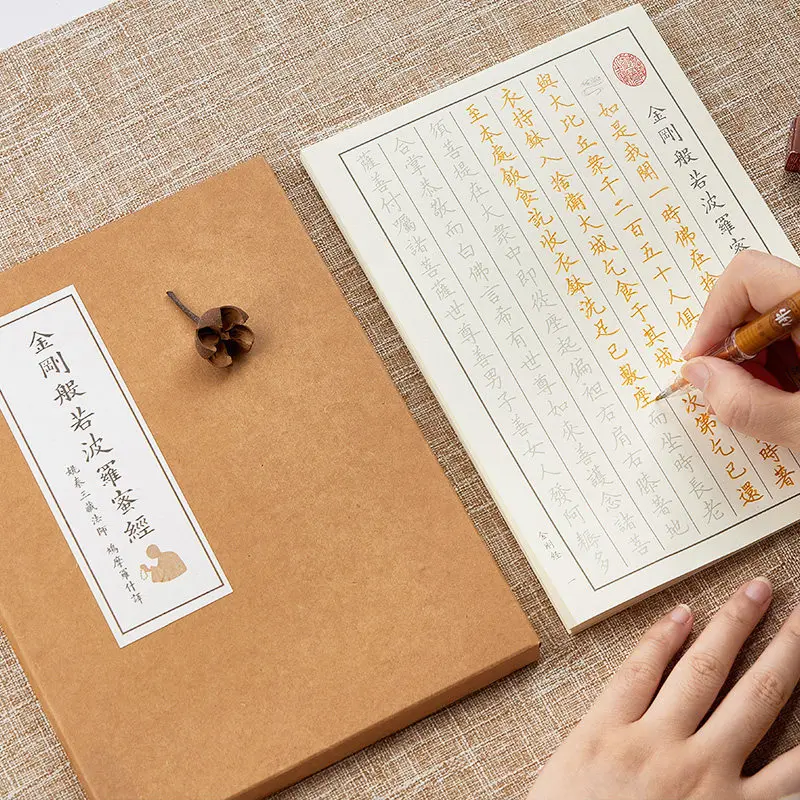 金剛般若波羅蜜
如是我聞一時佛在捨
與大比丘衆千二百五十人俱 時著
衣持鉢入捨衛大城乞食于其城 次第乞已還
至本處飯食訖收衣鉢洗足已敷座而坐時長老
須菩提在大衆中即從座起偏袒右肩右膝著地
合掌恭敬而白佛言希有世尊如來善護念諸菩
薩善付囑諸菩薩世尊善男子善女人發阿耨多
金剛經
金剛般若波羅蜜經
姚秦三藏法師 鳩摩羅什譯